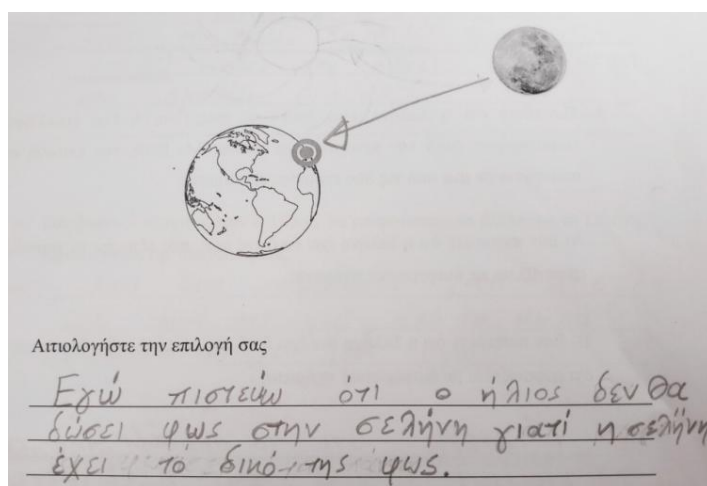 Αιτιολογήστε την επιλογή σας
Εγώ πιστεύω ότι ο ήλιος δεν θα
δώσει φως στην σελήνη γιατί η σελήνη
έχει τό δικό της φως.